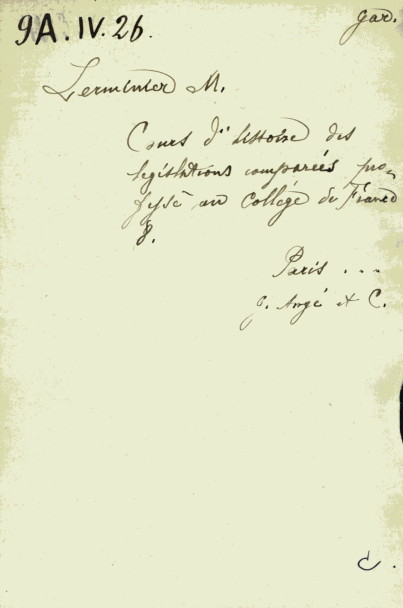 9A.IV.26.
gar.
Lerminier M.
Cours d'histoire des
législations comparées pro-
fessé au Collége de France
8.
Paris ...
J. Angé et C.
C.